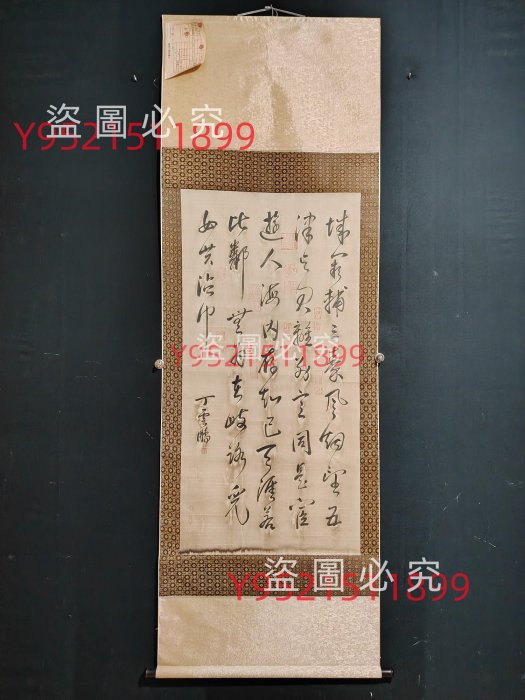 城闕輔三秦風烟望五
津与君離別意同是宦
遊人海内存知己天涯若
比鄰無為在歧路兒
女共沾巾
丁雲鵬
盜圖必究
Y9521511899
盜圖必究
Y9521511899
盜圖必究
Y9521511899